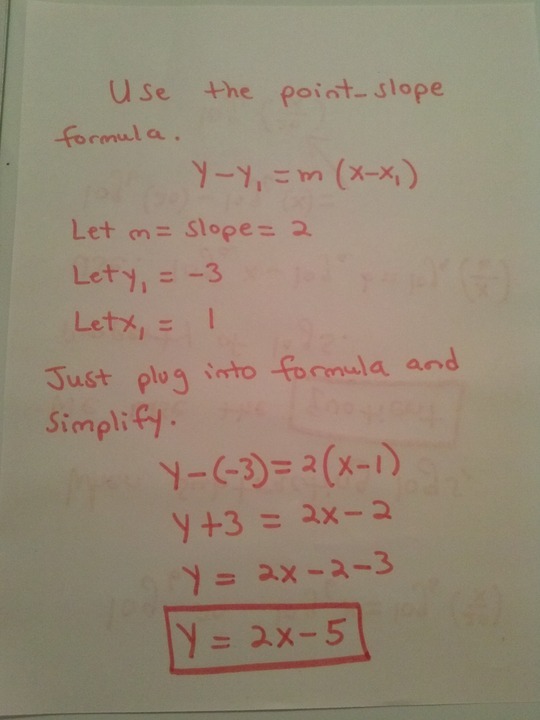 Use the point-slope
formula.
y-y₁ = m (x-x₁)
Let m = slope = 2
Let y₁ = -3
Let x₁ = 1
Just plug into formula and
simplify.
y-(-3) = 2(x-1)
y+3 = 2x-2
y = 2x-2-3
y = 2x-5